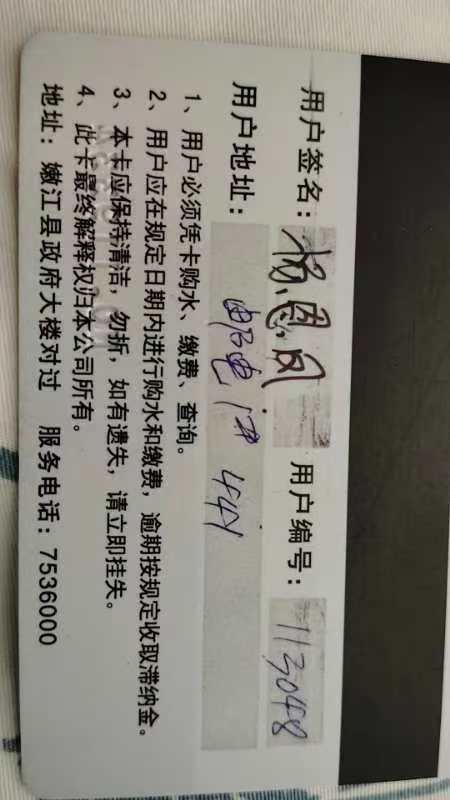 用户签名：杨恩凤 用户编号：113048
用户地址：邮电1# 441
1、用户必须凭卡购水、缴费、查询。
2、用户应在规定日期内进行购水和缴费，逾期按规定收取滞纳金。
3、本卡应保持清洁，勿折，如有遗失，请立即挂失。
4、此卡最终解释权归本公司所有。
地址：嫩江县政府大楼对过 服务电话：7536000